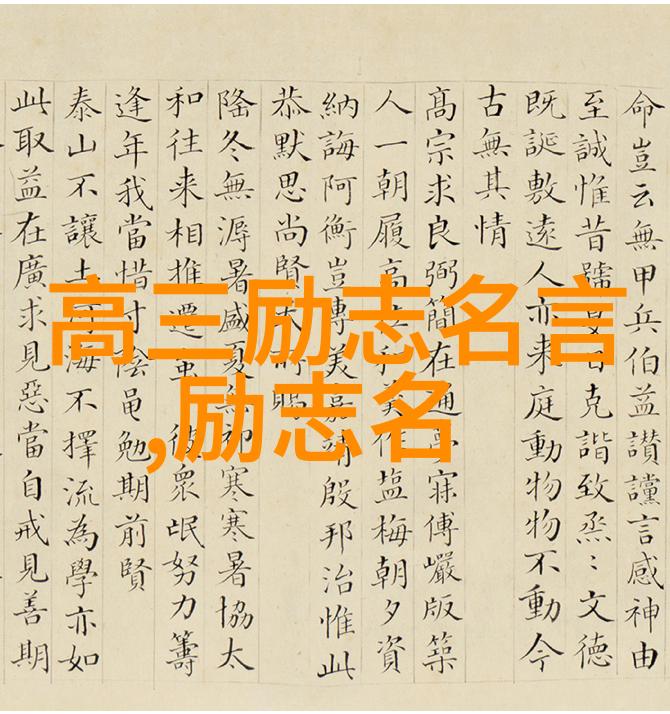 命豈云無甲兵伯益讃讜言感神由
至誠惟昔號克諧致烝〻文德
既誕敷遠人亦来庭動物物不動今
古無其情
高宗求良弼簡在通夢寐傅巖版築
人一朝履高位和美作塩梅朝夕資
納誨阿衡豈專美嘉靖殷邦治惟此
恭默思尚賢所賜
隆冬無溽暑盛夏無初寒寒暑協太
和往来相推遷彼衆氓努力籌
逢年我當惜寸陰黽勉期前賢
泰山不讓土河海不擇流為學亦如
此取益在廣求見惡當自戒見善期
高三励志名言
,励志名